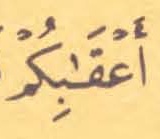 أَعۡقَٰبِكُمۡ